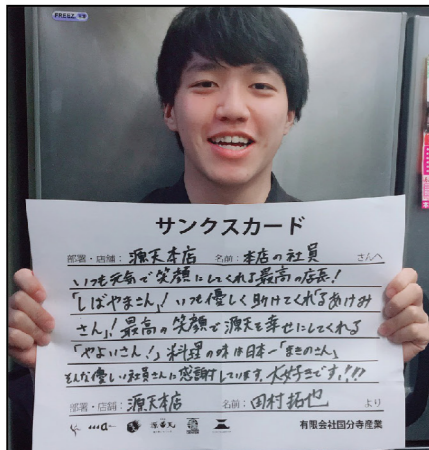 サンクスカード
部署・店舗： 源天本店 名前： 本店の社員 さんへ
いつも元気で笑顔にしてくれる最高の店長！
「しばやまさん」！いつも優しく助けてくれる「あけみ
さん」！最高の笑顔で源天を幸せにしてくれる
「やよいさん！」料理の味は日本一「まきのさん」
そんな優しい社員さんに感謝しています。大好きです！！！
部署・店舗： 源天本店 名前： 田村拓也 より
有限会社国分寺産業